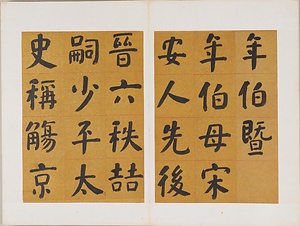 年伯暨
年伯母宋
安人先後
晉六秩喆
嗣少平太
史稱觴京